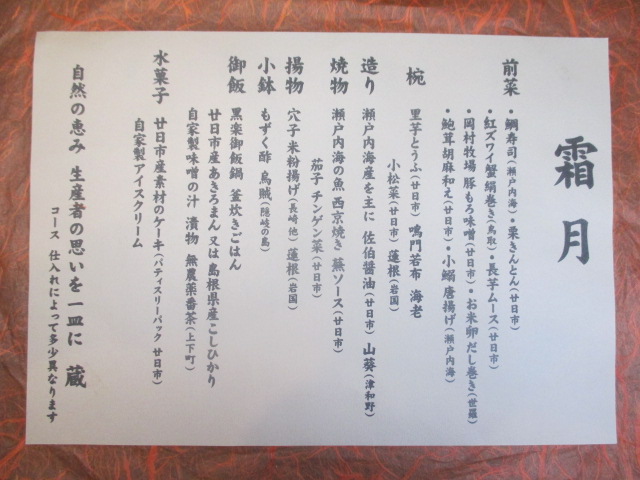 霜月
前菜 ・鯛寿司(瀬戸内海)・栗きんとん(廿日市)
・紅ズワイ蟹絹巻き(鳥取)・長芋ムース(廿日市)
・岡村牧場 豚もろ味噌(廿日市)・お米卵だし巻き(世羅)
・鮑茸胡麻和え(廿日市)・小鰯唐揚げ(瀬戸内海)
椀 里芋とうふ(廿日市) 鳴門若布 海老
小松菜(廿日市) 蓮根(岩国)
造り 瀬戸内海産を主に 佐伯醤油(廿日市) 山葵(津和野)
焼物 瀬戸内海の魚 西京焼き 蕪ソース(廿日市)
茄子 チンゲン菜(廿日市)
揚物 穴子米粉揚げ(長崎 他) 蓮根(岩国)
小鉢 もずく酢 烏賊(隠岐の島)
御飯 黒楽御飯鍋 釜炊きごはん
廿日市産あきろまん 又は 島根県産こしひかり
自家製味噌の汁 漬物 無農薬番茶(上下町)
水菓子 廿日市産素材のケーキ(パティスリーパック 廿日市)
自家製アイスクリーム
自然の恵み 生産者の思いを一皿に 蔵
コース 仕入れによって多少異なります